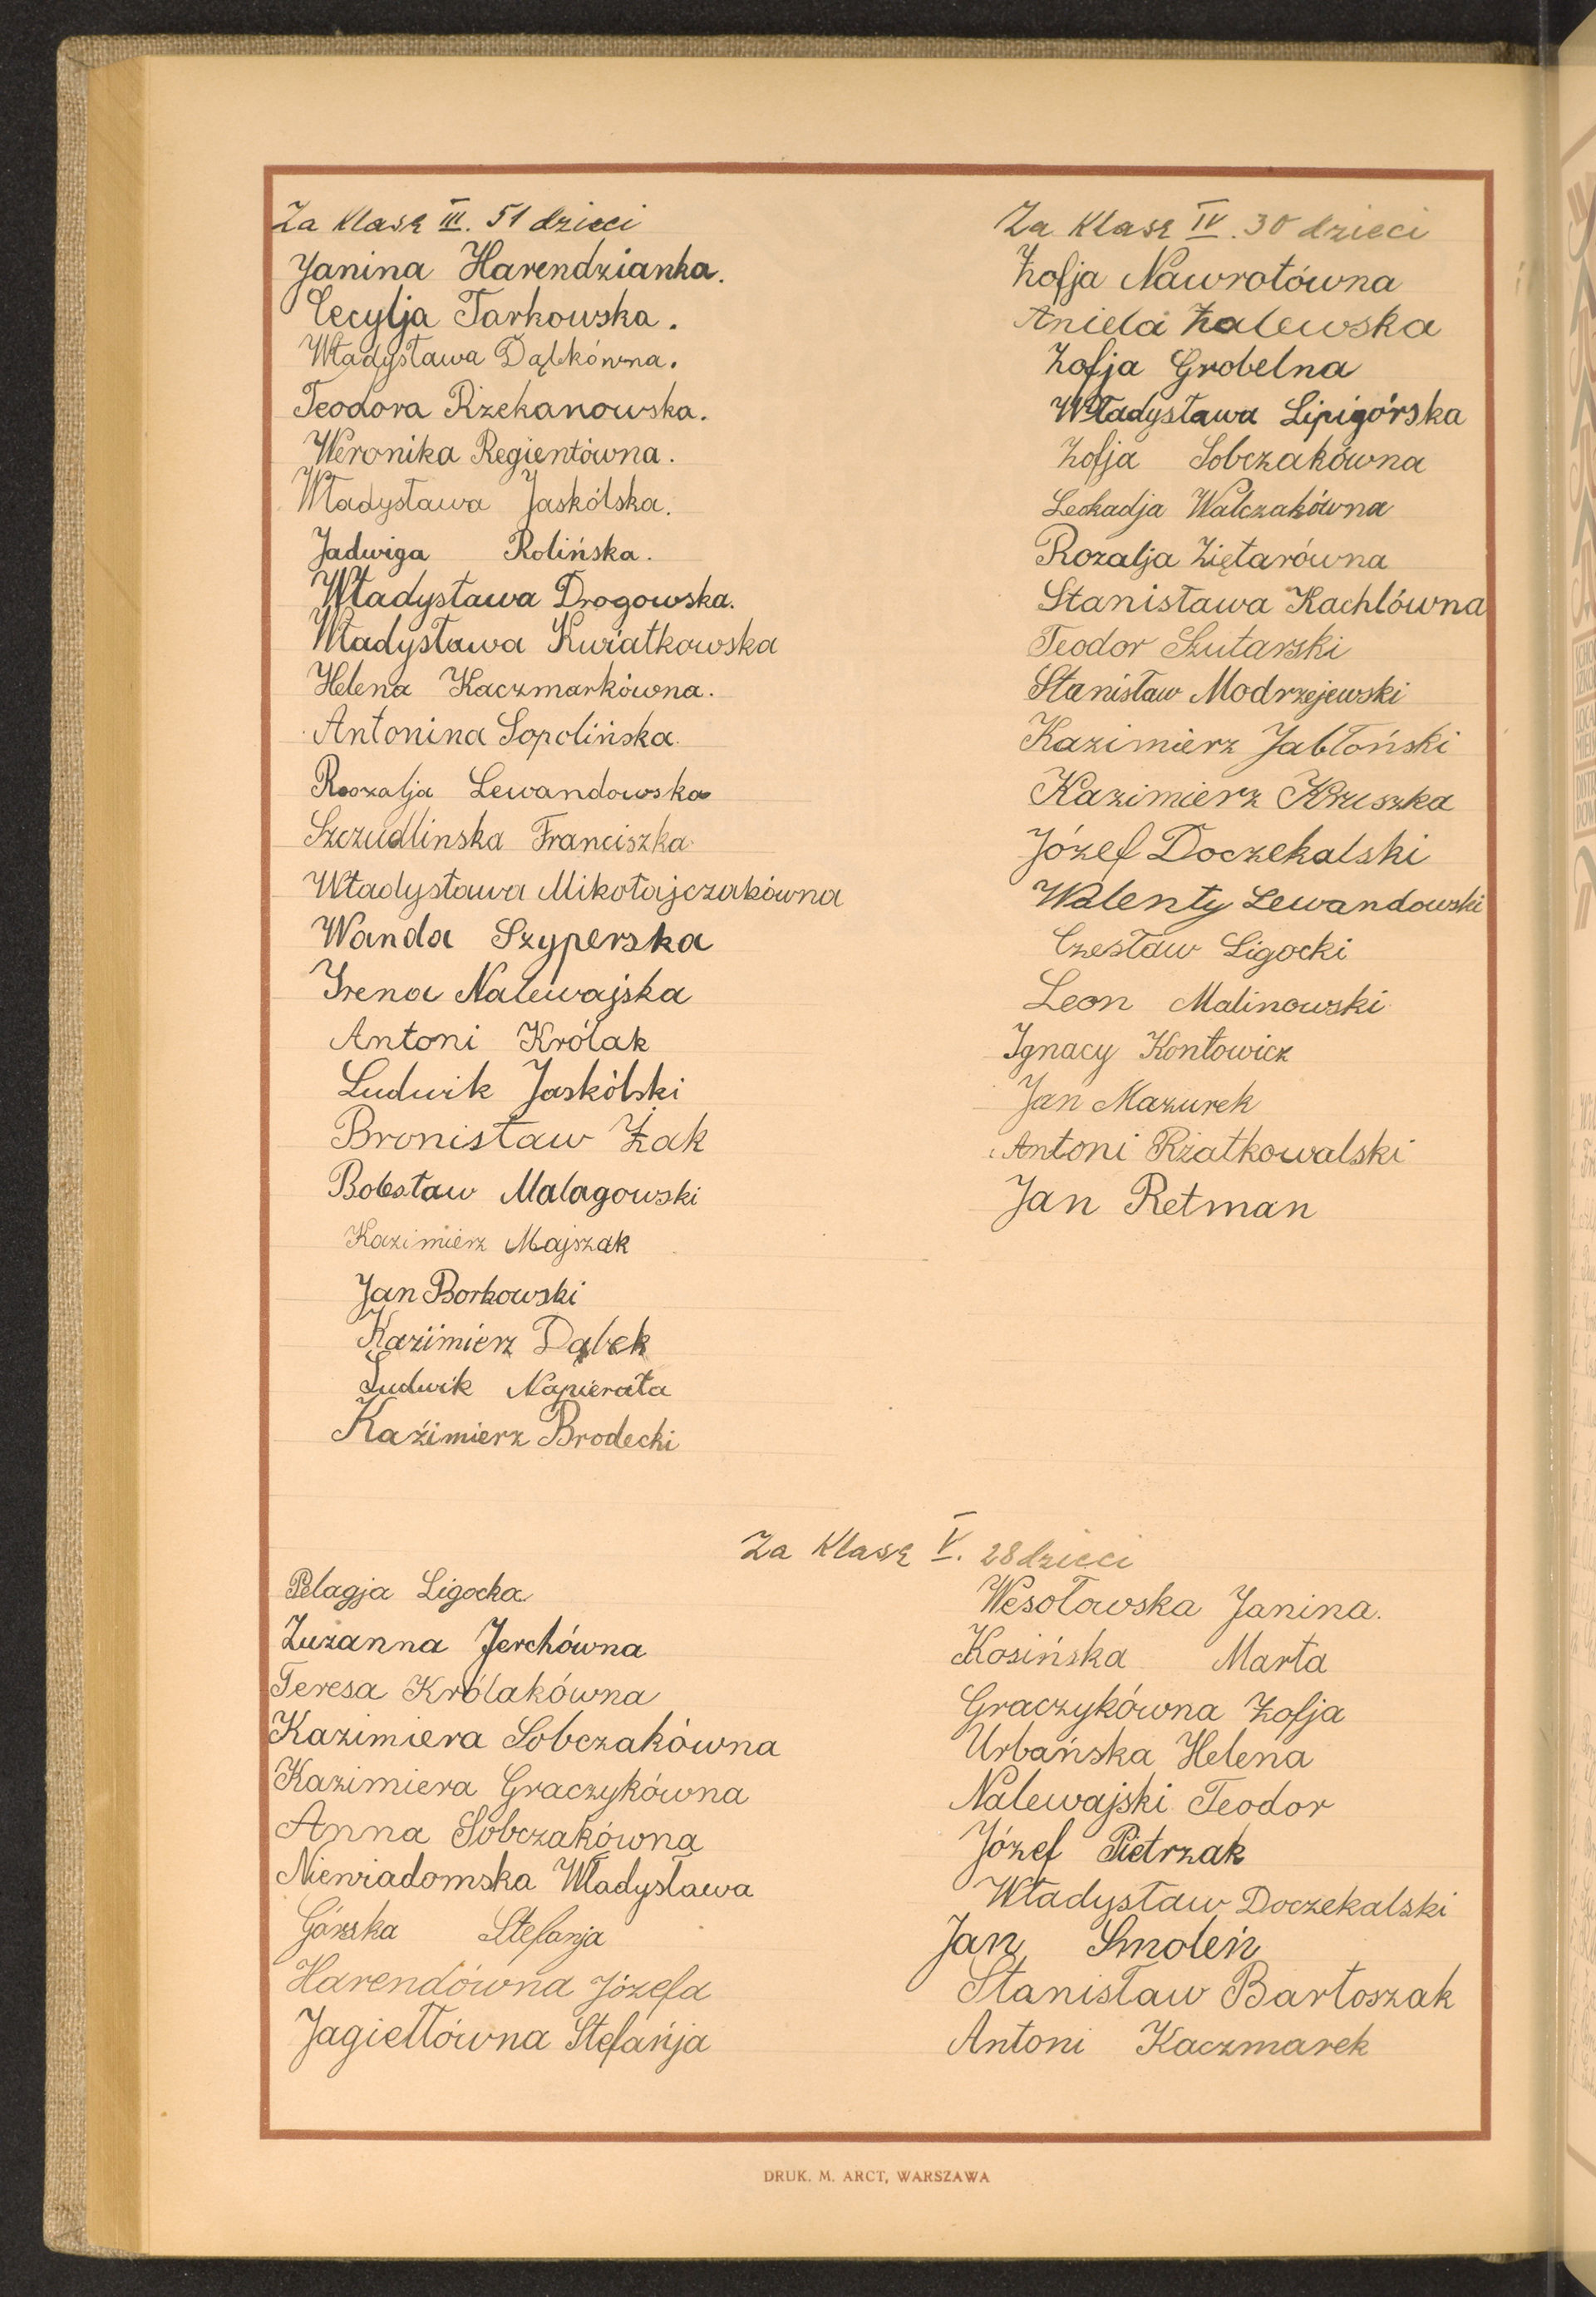 Za klasę III. 51 dzieci
Janina Harendzianka.
Cecylja Tarkowska.
Władysława Dąbkówna.
Teodora Rżekanowska.
Weronika Regientówna.
Władysława Jaskólska.
Jadwiga Rolińska.
Władysława Drogowska.
Władysława Kwiatkowska
Helena Kaczmarkówna.
Antonina Sopolińska.
Roozalja Lewandowska
Szczudlinska Franciszka
Władysława Mikołajczakówna
Wanda Szyperska
Irena Nalewajska
Antoni Królak
Ludwik Jaskólski
Bronisław Żak
Bolesław Malagowski
Kazimierz Majszak
Jan Borkowski
Kazimierz Dąbek
Ludwik Napierała
Kaźimierz Brodecki
Za Klasę IV. 30 dzieci
Zofja Nawrotówna
Aniela Zalewska
Zofja Grobelna
Władysława Lipigórska
Zofja Sobczakówna
Leokadja Walczakówna
Rozalja Ziętarówna
Stanisława Kachlówna
Teodor Szutarski
Stanisław Modrzejewski
Kazimierz Jabłoński
Kazimierz Kruszka
Józef Doczekalski
Walenty Lewandowski
Czesław Ligocki
Leon Malinowski
Ignacy Kontowicz
Jan Mazurek
Antoni Rżatkowalski
Jan Retman
Za Klasę V. 28 dzieci
Pelagja Ligocka
Zuzanna Jerchówna
Teresa Królakówna
Kazimiera Sobczakówna
Kazimiera Graczykówna
Anna Sobczakówna
Niewiadomska Władysława
Górska Stefanja
Harendówna Józefa
Jagiełłówna Stefańja
Wesołowska Janina.
Kosińska Marta
Graczykówna Zofja
Urbańska Helena
Nalewajski Teodor
Józef Pietrzak
Władysław Doczekalski
Jan Smoleń
Stanisław Bartoszak
Antoni Kaczmarek
DRUK. M. ARCT, WARSZAWA